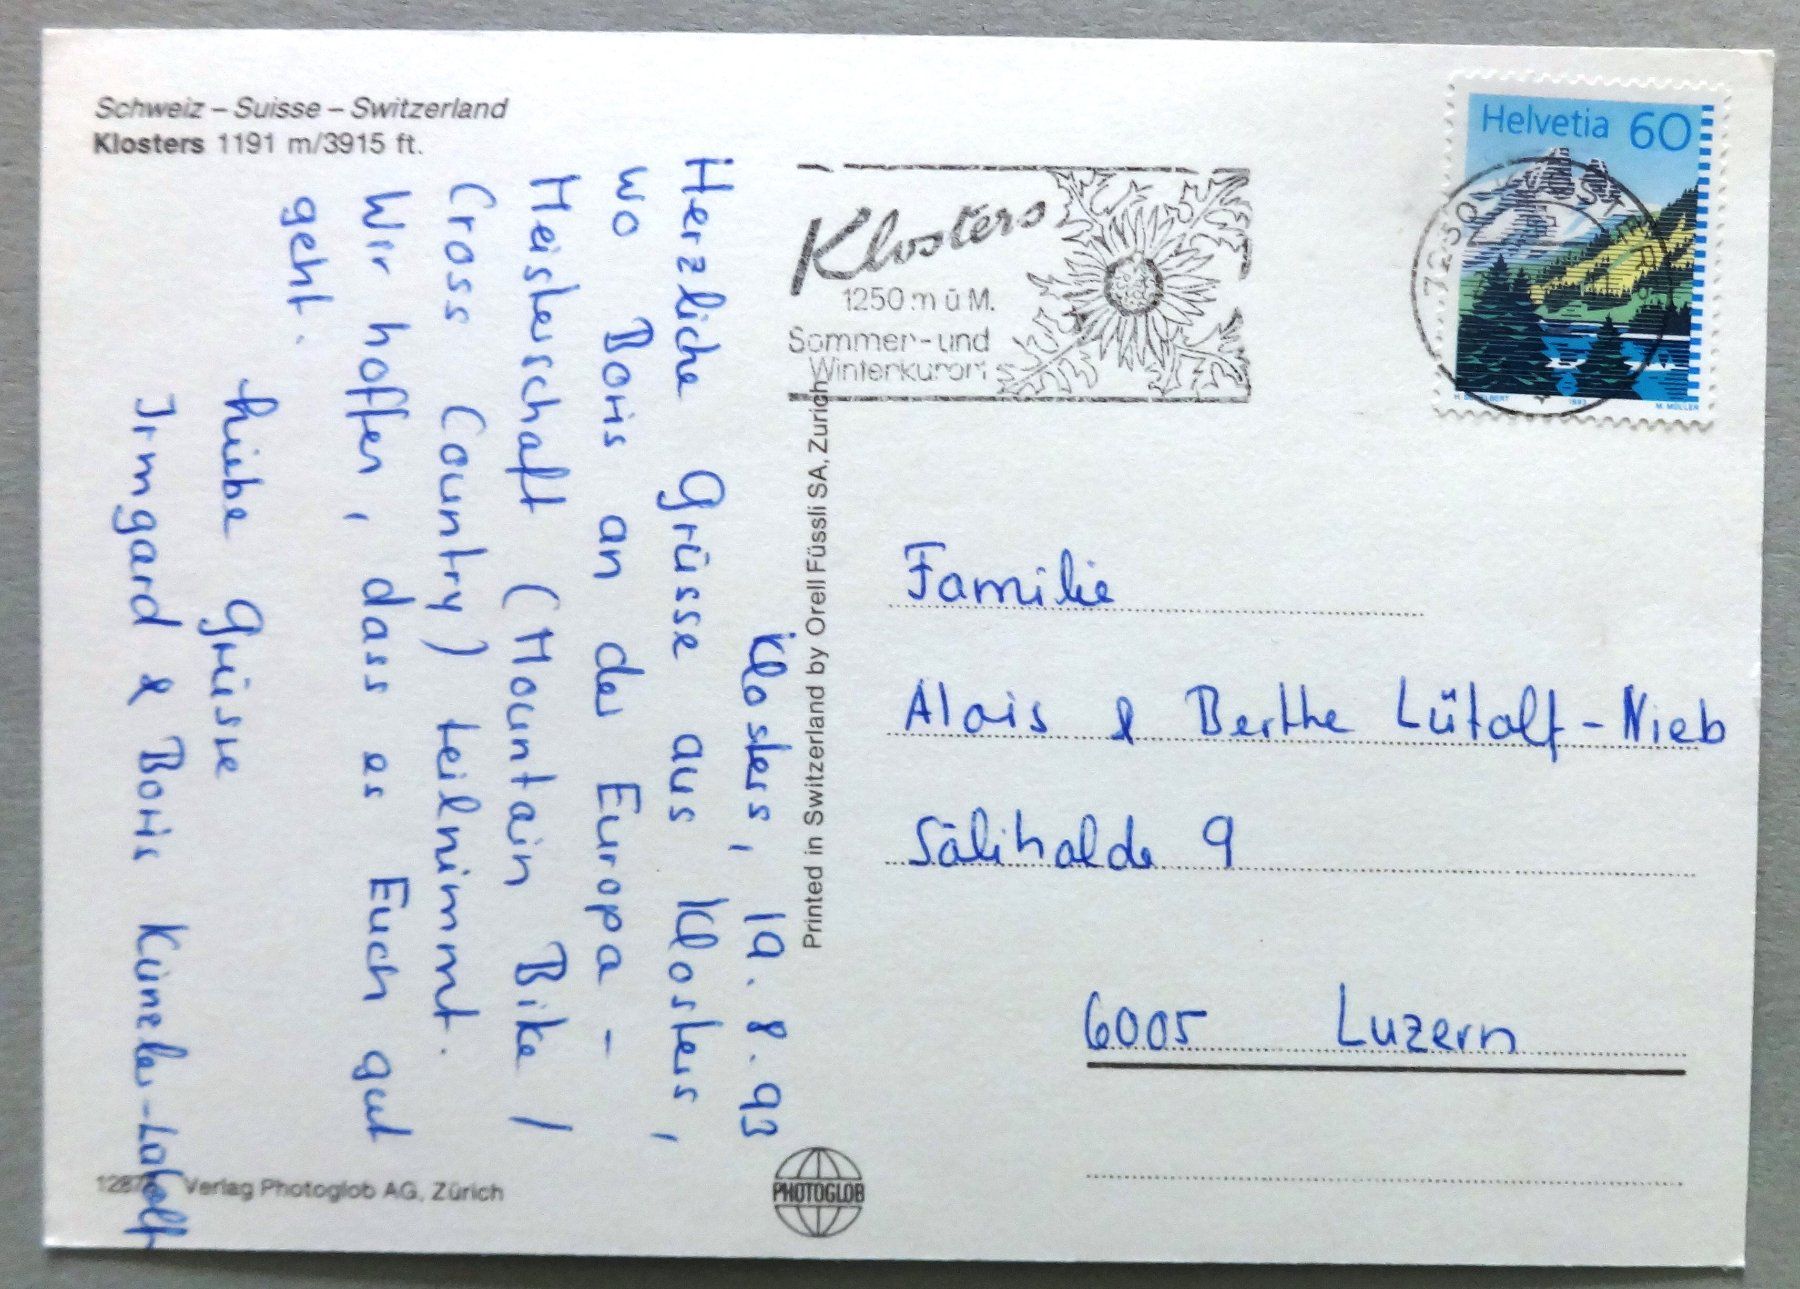 Schweiz – Suisse – Switzerland
Klosters 1191 m/3915 ft.
Klosters, 19.8.93
Herzliche Grüsse aus Klosters,
wo Boris an der Europa-
Meisterschaft (Mountain Bike /
Cross Country) teilnimmt.
Wir hoffen, dass es Euch gut
geht.
Liebe Grüsse
Irmgard & Boris Künzler-Lütolf
Verlag Photoglob AG, Zürich
Printed in Switzerland by Orell Füssli SA, Zürich
PHOTOGLOB
Klosters
1250 m ü M.
Sommer- und
Winterkurort
Helvetia 60
1993
M. MÜLLER
7250
Familie
Alois & Berthe Lütolf-Nieb
Sälihalde 9
6005 Luzern